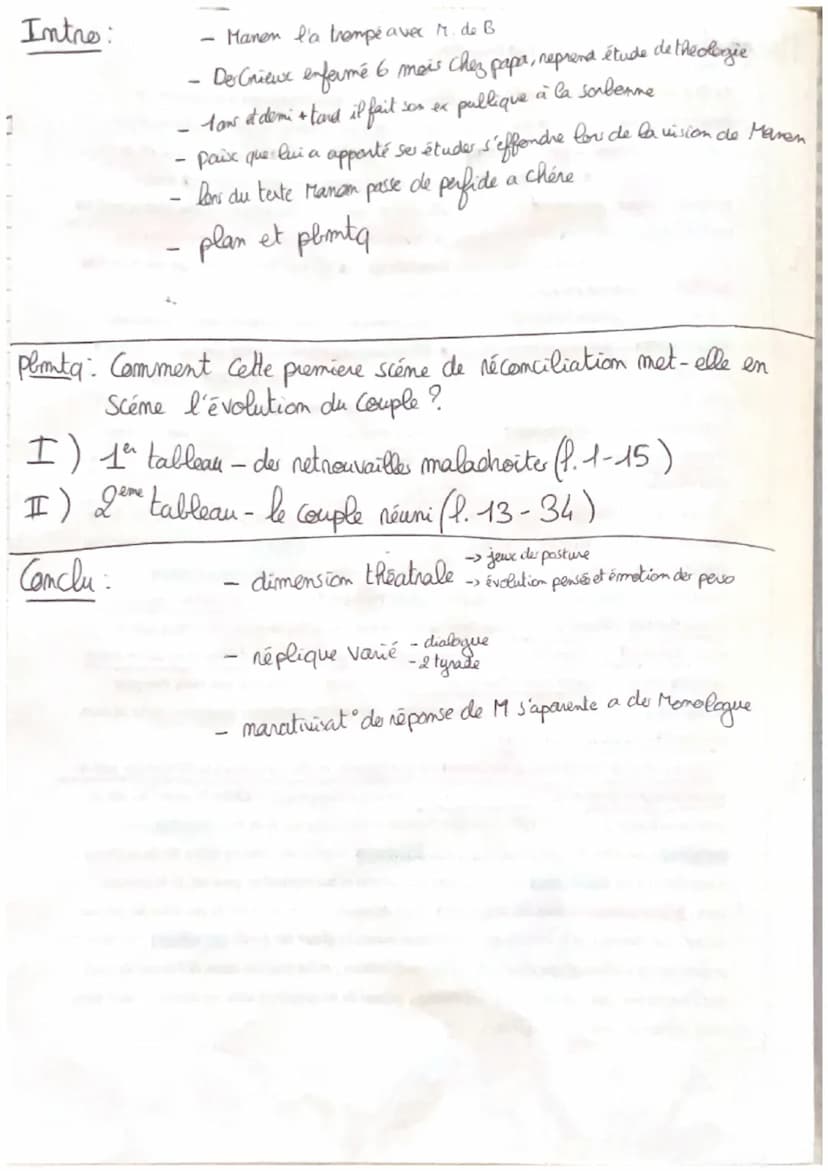 Intro :
- Manon l'a trompé avec M. de B
- Des Grieux enfermé 6 mois chez papa, reprend étude de théologie
- 1 ans et demi + tard il fait son ex publique à la sorbonne
- paix que lui a apporté ses études s'effondre lors de la vision de Manon
- lors du texte Manon passe de perfide a chére
- plan et pbmtq
Pbmtq : Comment cette premiere scéne de réconciliation met-elle en
Scéne l'évolution du couple ?
I) 1er tableau - des retrouvailles maladroites (l. 1-15)
II) 2eme tableau - le couple réuni (l. 13-34)
Conclu :
- dimension théatrale -> jeux de posture
-> évolution pensée et émotion des perso
- réplique varié - dialogue
- 2 tyrade
- narativisat° de réponse de M s'aparente a des Monologue